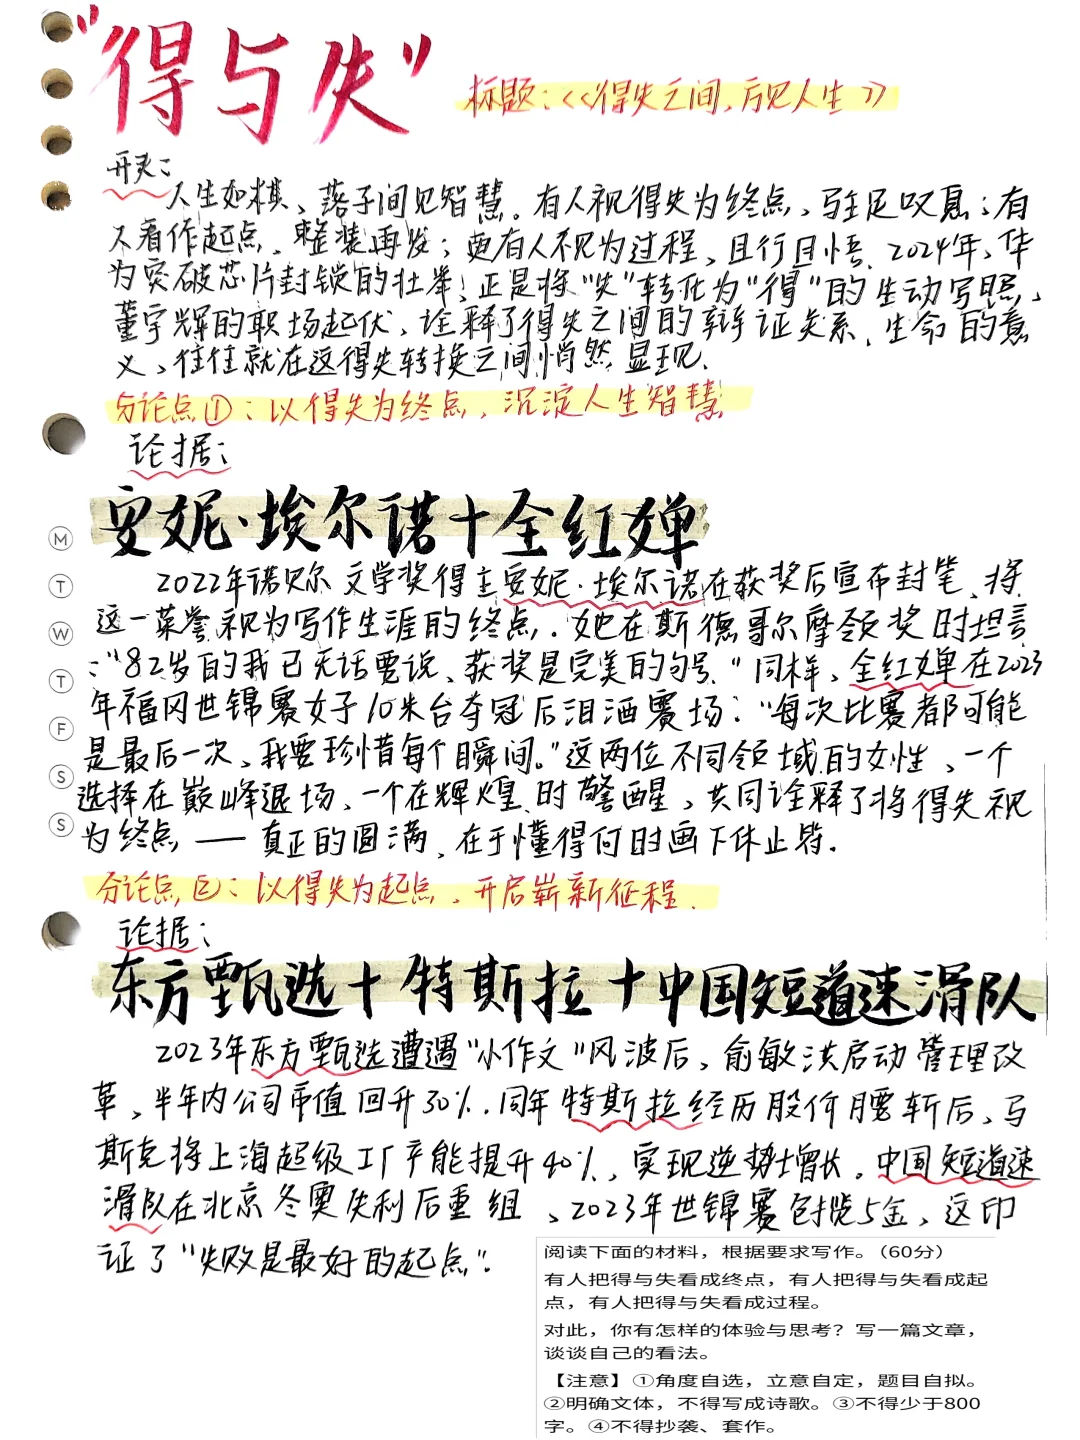 "得与失"
标题:《得失之间,方见人生》
开头:
人生如棋、落子间见智慧。有人视得失为终点、驻足叹息;有
人看作起点、整装再发;更有人不视为过程、且行且悟、2024年、华
为突破芯片封锁的壮举!正是将"失"转化为"得"的生动写照、
董宇辉的职场起伏、诠释了得失之间的辩证关系、生命的意
义、往往就在这得失转换之间悄然显现.
分论点①:以得失为终点、沉淀人生智慧
论据:
安妮·埃尔诺+全红婵
2022年诺贝尔文学奖得主安妮·埃尔诺在获奖后宣布封笔、将
这一荣誉视为写作生涯的终点.她在斯德哥尔摩领奖时坦言
:"82岁的我已无话要说、获奖是完美的句号."同样、全红婵在2023
年福冈世锦赛女子10米台夺冠后泪洒赛场:"每次比赛都可能
是最后一次、我要珍惜每个瞬间。"这两位不同领域的女性、一个
选择在巅峰退场、一个在辉煌时警醒,共同诠释了将得失视
为终点——真正的圆满、在于懂得何时画下休止符.
分论点②:以得失为起点、开启崭新征程.
论据:
东方甄选+特斯拉+中国短道速滑队
2023年东方甄选遭遇"小作文"风波后,俞敏洪启动管理改
革、半年内公司市值回升30%.同年特斯拉经历股价腰斩后、马
斯克将上海超级工厂产能提升40%、实现逆势增长。中国短道速
滑队在北京冬奥失利后重组、2023年世锦赛包揽5金、这印
证了"失败是最好的起点".
阅读下面的材料,根据要求写作。(60分)
有人把得与失看成终点,有人把得与失看成起
点,有人把得与失看成过程。
对此,你有怎样的体验与思考?写一篇文章,
谈谈自己的看法。
【注意】①角度自选,立意自定,题目自拟。
②明确文体,不得写成诗歌。③不得少于800
字。④不得抄袭、套作。
M
T
W
T
F
S
S